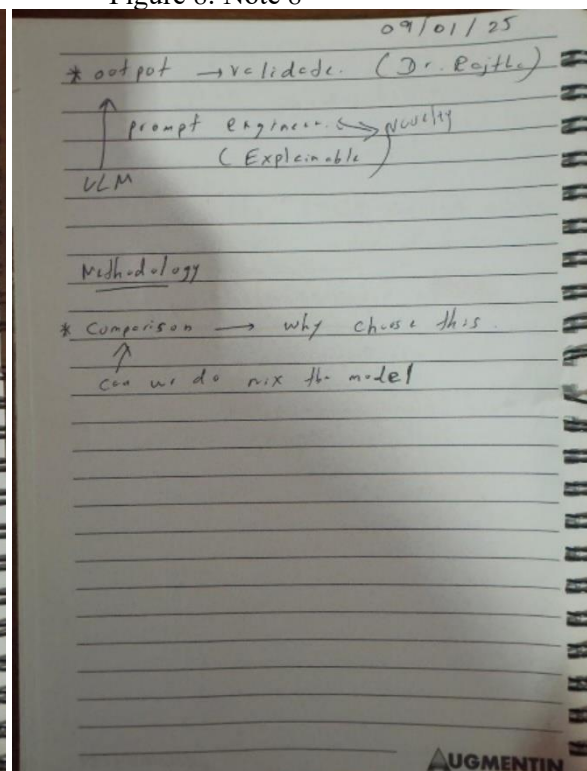 Figure 8: Note 8
09/01/25
* output → validade. (Dr. Rajtha)
prompt engineer. Novelty
(Explainable)
VLM
Methodology
* Comparison → why choose this.
can we do mix the model
AUGMENTIN